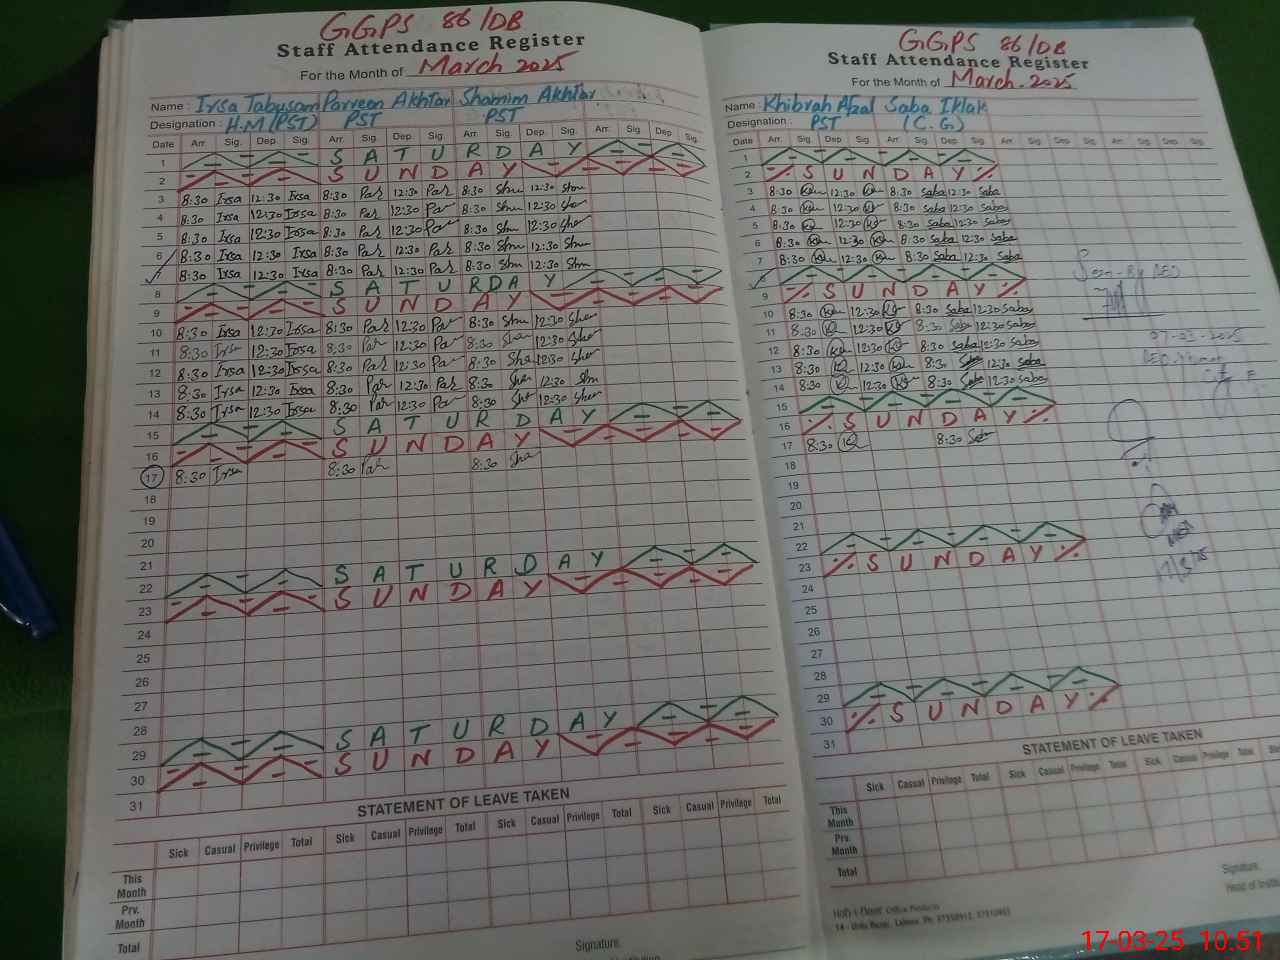 GGPS 86/DB
Staff Attendance Register
For the Month of March 2025
Name : Irsa Tabusam Parveen Akhtar Shamim Akhtar
Designation : H.M (PST) PST PST
Date Arr. Sig. Dep. Sig. Arr. Sig. Dep. Sig. Arr. Sig. Dep. Sig. Arr. Sig. Dep. Sig.
1 S A T U R D A Y
2 S U N D A Y
3 8:30 Irsa 12:30 Irsa 8:30 Par 12:30 Par 8:30 Shm 12:30 Shm
4 8:30 Irsa 12:30 Irsa 8:30 Par 12:30 Par 8:30 Shm 12:30 Sha
5 8:30 Irsa 12:30 Irsa 8:30 Par 12:30 Par 8:30 Shm 12:30 Sha
6 8:30 Irsa 12:30 Irsa 8:30 Par 12:30 Par 8:30 Shm 12:30 Shm
7 8:30 Irsa 12:30 Irsa 8:30 Par 12:30 Par 8:30 Shm 12:30 Shm
8 S A T U R D A Y
9 S U N D A Y
10 8:30 Irsa 12:30 Irsa 8:30 Par 12:30 Par 8:30 Shm 12:30 Sha
11 8:30 Irsa 12:30 Irsa 8:30 Par 12:30 Par 8:30 Sha 12:30 Sha
12 8:30 Irsa 12:30 Irsa 8:30 Par 12:30 Par 8:30 Sha 12:30 Sha
13 8:30 Irsa 12:30 Irsa 8:30 Par 12:30 Par 8:30 Sha 12:30 Shm
14 8:30 Irsa 12:30 Irsa 8:30 Par 12:30 Par 8:30 Sha 12:30 Sha
15 S A T U R D A Y
16 S U N D A Y
17 8:30 Irsa 8:30 Par 8:30 Sha
18
19
20
21
22 S A T U R D A Y
23 S U N D A Y
24
25
26
27
28
29 S A T U R D A Y
30 S U N D A Y
31
STATEMENT OF LEAVE TAKEN
Sick Casual Privilege Total Sick Casual Privilege Total Sick Casual Privilege Total
This Month
Prv. Month
Total
Signature.
GGPS 86/DB
Staff Attendance Register
For the Month of March.2025
Name : Khibrah Afzal Saba Iklak
Designation : PST (C.G)
Date Arr. Sig. Dep. Sig. Arr. Sig. Dep. Sig. Arr. Sig. Dep. Sig. Arr. Sig. Dep. Sig.
1
2 S U N D A Y
3 8:30 12:30 8:30 Saba 12:30 Saba
4 8:30 12:30 8:30 Saba 12:30 Saba
5 8:30 12:30 8:30 Saba 12:30 Saba
6 8:30 12:30 8:30 Saba 12:30 Saba
7 8:30 12:30 8:30 Saba 12:30 Saba
8
9 S U N D A Y
10 8:30 12:30 8:30 Saba 12:30 Saba
11 8:30 12:30 8:30 Saba 12:30 Saba
12 8:30 12:30 8:30 Saba 12:30 Saba
13 8:30 12:30 8:30 12:30 Saba
14 8:30 12:30 8:30 Saba 12:30 Saba
15
16 S U N D A Y
17 8:30 8:30
18
19
20
21
22
23 S U N D A Y
24
25
26
27
28
29
30 S U N D A Y
31
Seen By DEO
07-03-2025
STATEMENT OF LEAVE TAKEN
Sick Casual Privilege Total Sick Casual Privilege Total Sick Casual Privilege Total
This Month
Prv. Month
Total
Signature.
Office Products
14 - Urdu Bazar, Lahore. Ph:
17-03-25 10:51